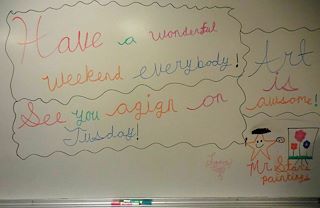 Have a wonderful
Weekend everybody!
See you agign on
Tusday!
Art
is
awsome!
Mr Stars
paintings